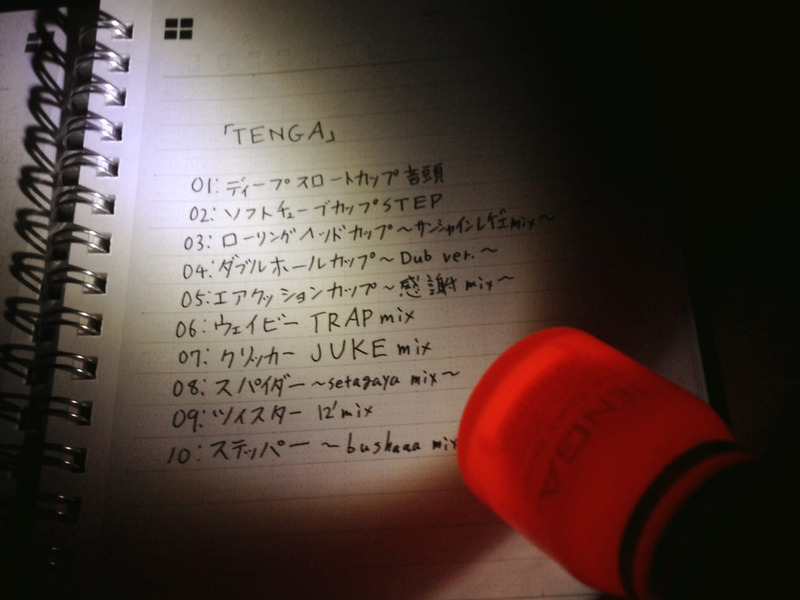 「TENGA」
01:ディープスロートカップ音頭
02:ソフトチューブカップSTEP
03:ローリングヘッドカップ〜サンシャインレゲエmix〜
04:ダブルホールカップ〜Dub ver.〜
05:エアクッションカップ〜感謝mix〜
06:ウェイビーTRAPmix
07:クリッカーJUKE mix
08:スパイダー〜setagaya mix〜
09:ツイスター 12'mix
10:ステッパー〜bushaaa mix
TENGA